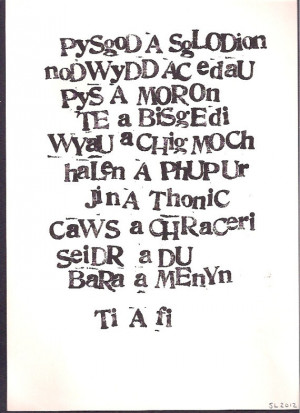 PYSgoD A SgLODion
noDWYDD AC edaU
PYS A MORON
TE a BiSgEdi
WYaU a CHig MOCH
haLen A PHUPUr
JinA THONIC
CaWS a CHRACeri
SeiDR a DU
BaRa a MENYn
Ti A fi
SL 2012